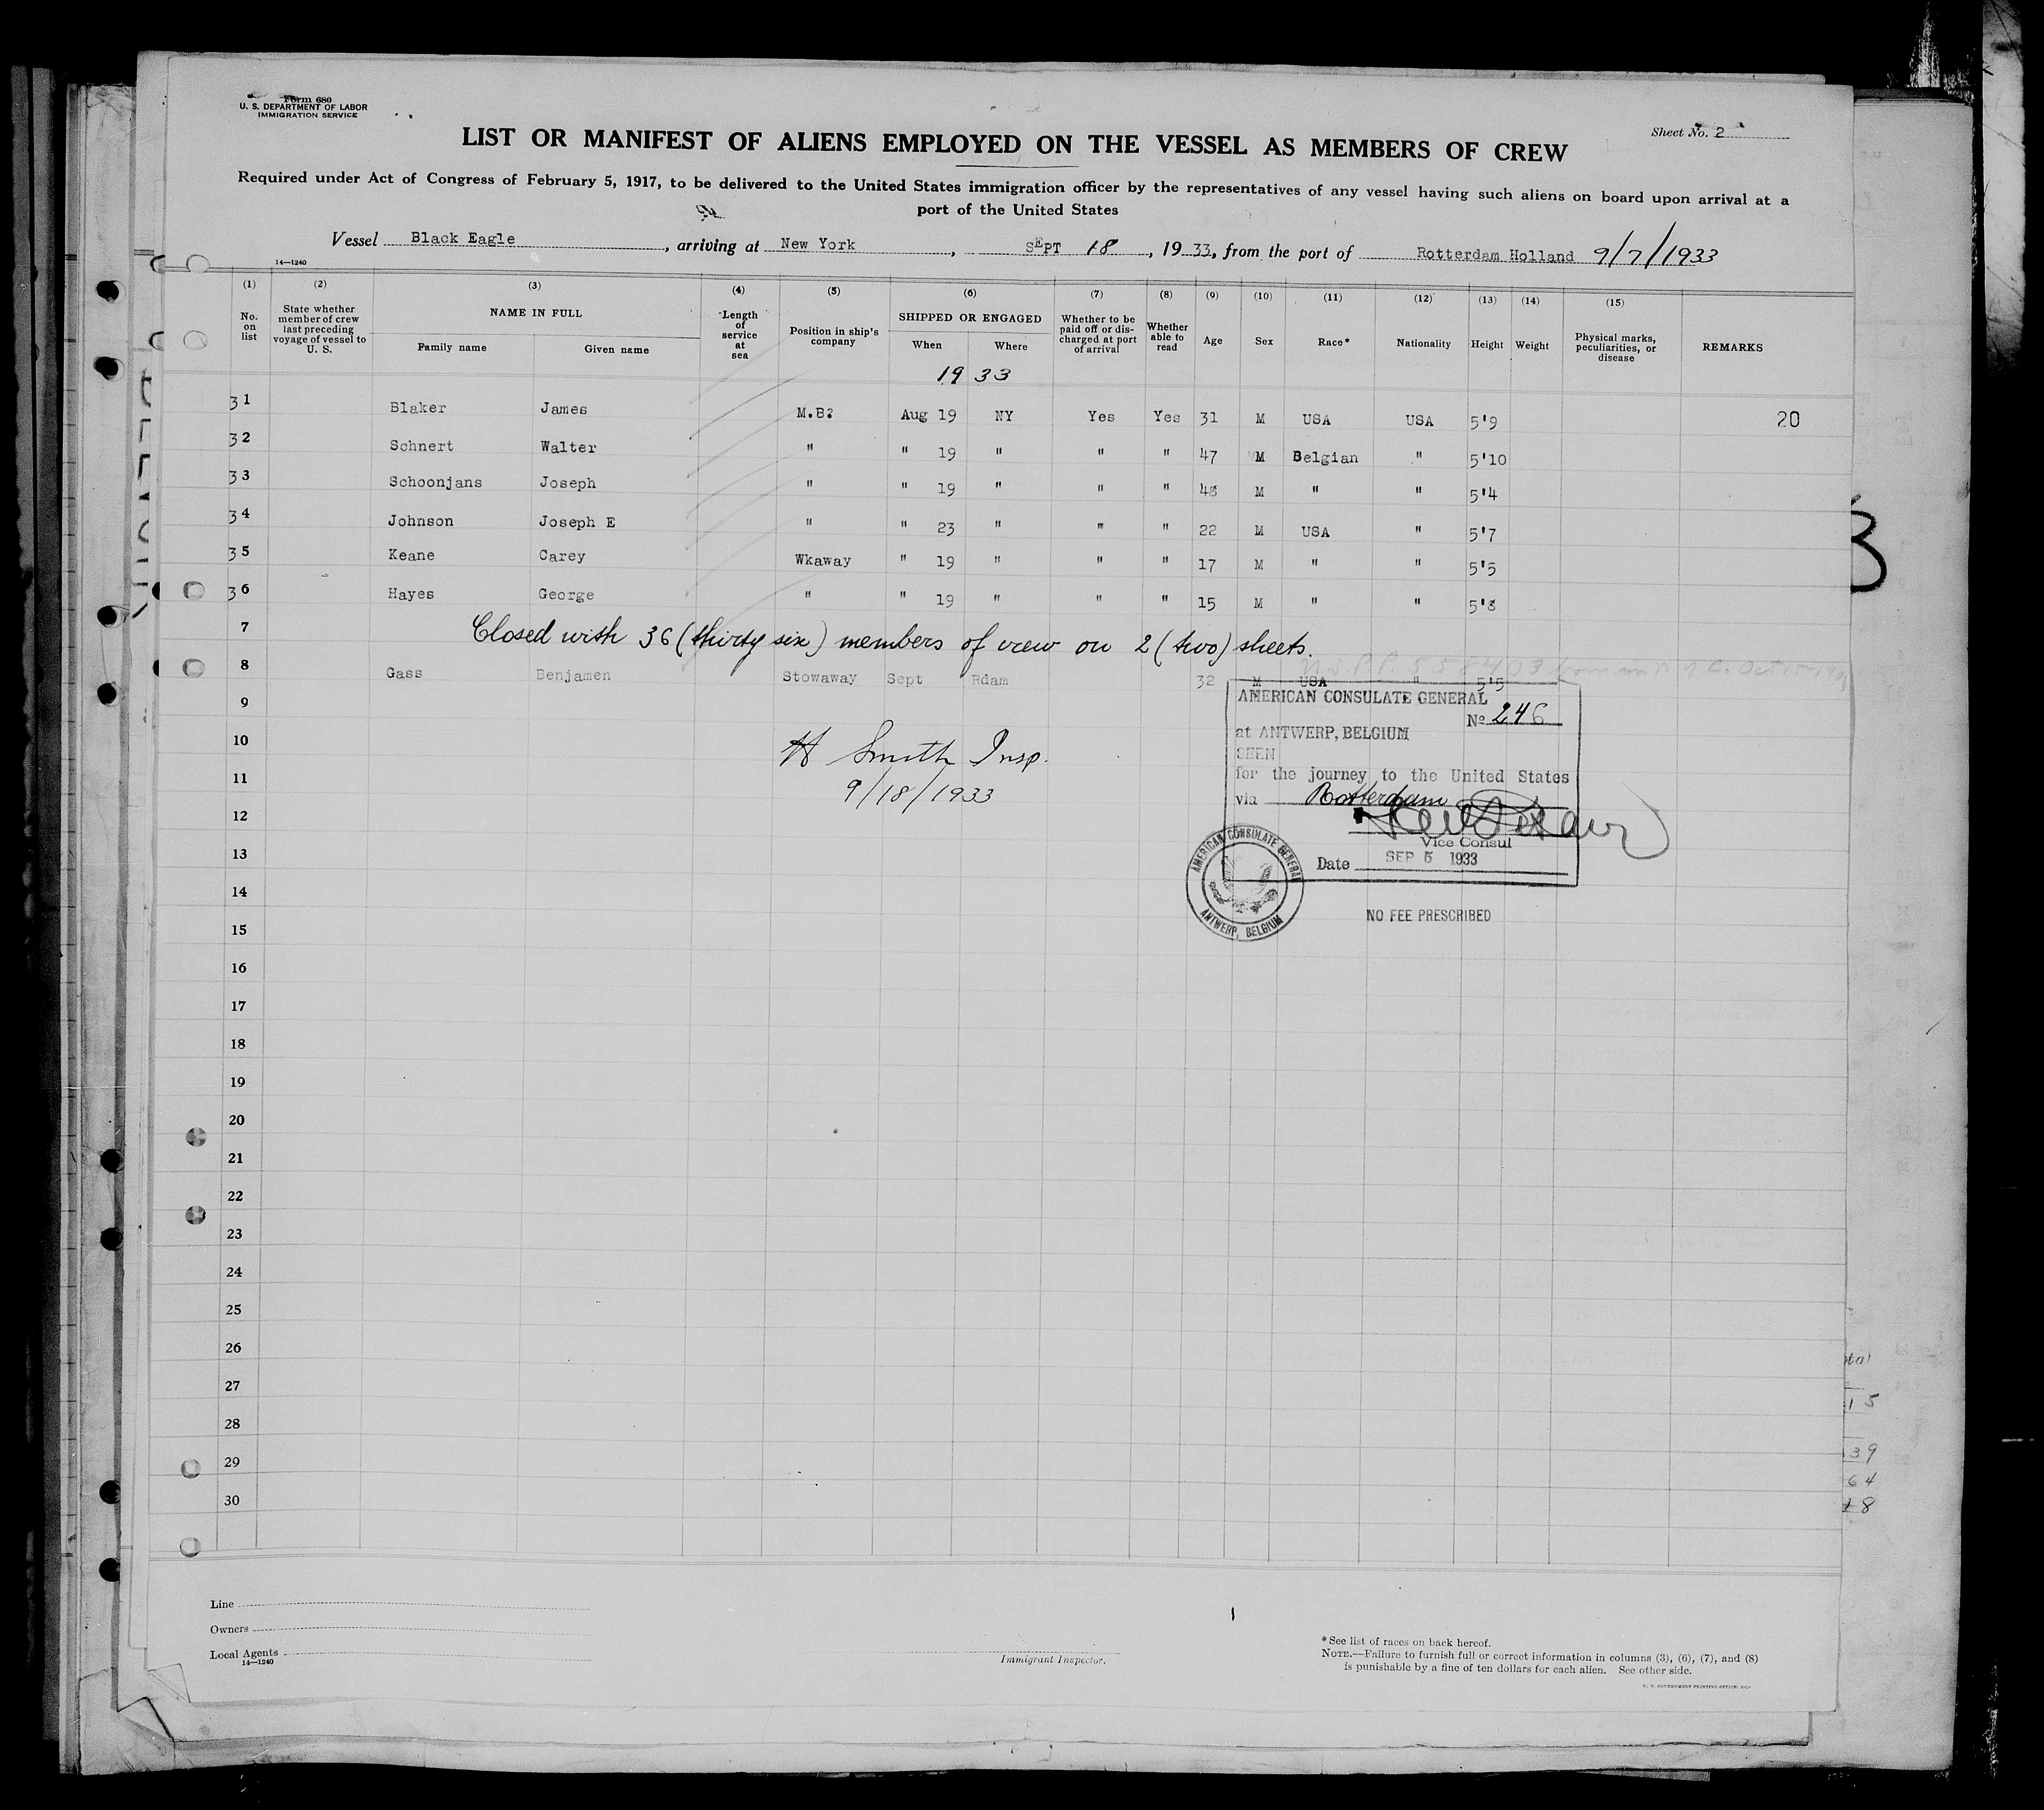 Form 680
U. S. DEPARTMENT OF LABOR
IMMIGRATION SERVICE
Sheet No. 2
LIST OR MANIFEST OF ALIENS EMPLOYED ON THE VESSEL AS MEMBERS OF CREW
Required under Act of Congress of February 5, 1917, to be delivered to the United States immigration officer by the representatives of any vessel having such aliens on board upon arrival at a
port of the United States
Vessel Black Eagle, arriving at New York, SEPT 18, 1933, from the port of Rotterdam Holland 9/7/1933
14—1240
(1) (2) (3) (4) (5) (6) (7) (8) (9) (10) (11) (12) (13) (14) (15)
No. on list
State whether member of crew last preceding voyage of vessel to U. S.
NAME IN FULL
Family name Given name
Length of service at sea
Position in ship's company
SHIPPED OR ENGAGED
When Where
Whether to be paid off or discharged at port of arrival
Whether able to read
Age Sex Race* Nationality Height Weight
Physical marks, peculiarities, or disease
REMARKS
1933
31 Blaker James M.B? Aug 19 NY Yes Yes 31 M USA USA 5'9 20
32 Schnert Walter " " 19 " " " 47 M Belgian " 5'10
33 Schoonjans Joseph " " 19 " " " 48 M " " 5'4
34 Johnson Joseph E " " 23 " " " 22 M USA " 5'7
35 Keane Carey Wkaway " 19 " " " 17 M " " 5'5
36 Hayes George " " 19 " " " 15 M " " 5'8
7 Closed with 36 (thirty six) members of crew on 2 (two) sheets.
8 Gass Benjamen Stowaway Sept Rdam 32 M USA " 5'5
9
10
11
12
13
14
15
16
17
18
19
20
21
22
23
24
25
26
27
28
29
30
H Smith Insp.
9/18/1933
AMERICAN CONSULATE GENERAL
No 246
at ANTWERP, BELGIUM
SEEN
for the journey to the United States
via Rotterdam
Vice Consul
Date SEP 5 1933
AMERICAN CONSULATE GENERAL
ANTWERP, BELGIUM
NO FEE PRESCRIBED
Line
Owners
Local Agents
14—1240
Immigrant Inspector.
*See list of races on back hereof.
NOTE.—Failure to furnish full or correct information in columns (3), (6), (7), and (8)
is punishable by a fine of ten dollars for each alien. See other side.